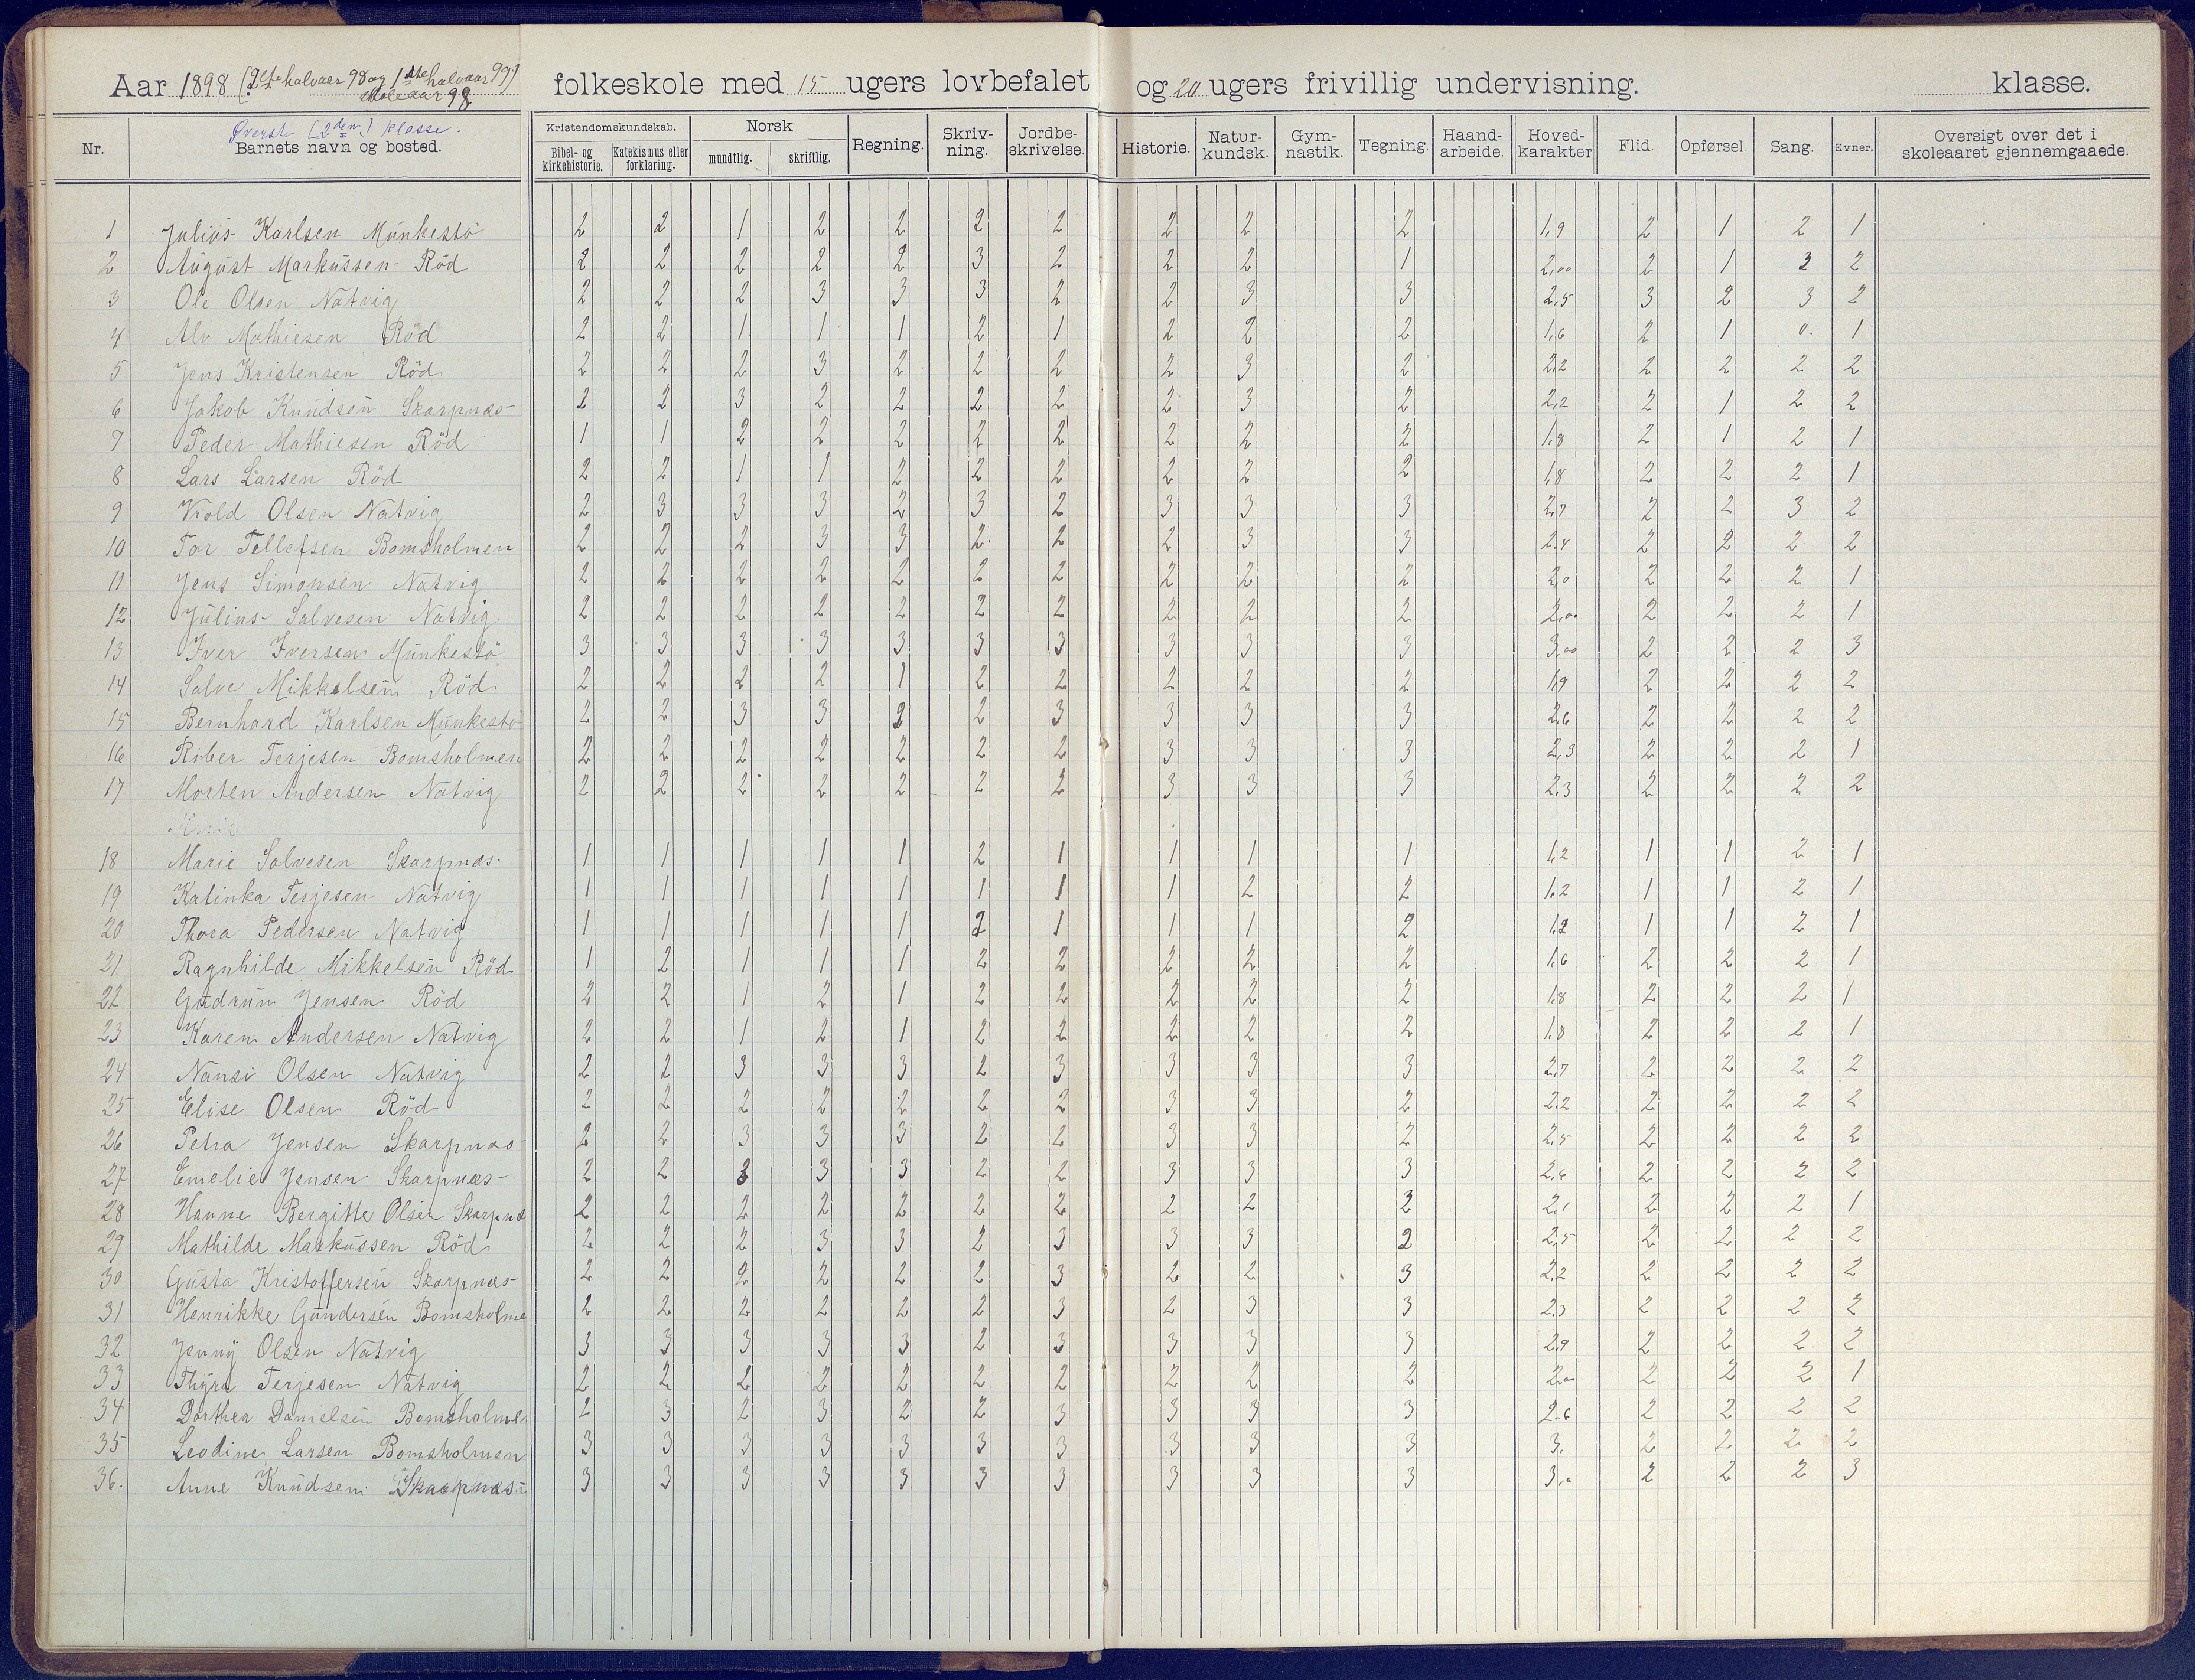 Aar 1898 (2det halvaar 98 og 1ste halvaar 99) folkeskole med 15 ugers lovbefalet og 20 ugers frivillig undervisning. klasse.
Skoleaar 98
Øverste (2den) klasse.
Nr. Barnets navn og bosted. Kristendomskundskab. Bibel- og kirkehistorie. Katekismus eller forklaring. Norsk mundtlig. skriftlig. Regning. Skriv-ning. Jordbe-skrivelse. Historie. Natur-kundsk. Gym-nastik. Tegning. Haand-arbeide. Hoved-karakter Flid. Opførsel. Sang. Evner. Oversigt over det i skoleaaret gjennemgaaede.
1 Julius Karlsen Munkestö 2 2 1 2 2 2 2 2 2 2 1,9 2 1 2 1
2 August Markussen Röd 2 2 2 2 2 3 2 2 2 1 2,00 2 1 3 2
3 Ole Olsen Natvig 2 2 2 3 3 3 2 2 3 3 2,5 3 2 3 2
4 Alv Mathiesen Röd 2 2 1 1 1 2 1 2 2 2 1,6 2 1 0. 1
5 Jens Kristensen Röd 2 2 2 3 2 2 2 2 3 2 2,2 2 2 2 2
6 Jakob Knudsen Skarpnæs 2 2 3 2 2 2 2 2 3 2 2,2 2 1 2 2
7 Peder Mathiesen Röd 1 1 2 2 2 2 2 2 2 2 1,8 2 1 2 1
8 Lars Larsen Röd 2 2 1 1 2 2 2 2 2 2 1,8 2 2 2 1
9 Kold Olsen Natvig 2 3 3 3 2 3 2 3 3 3 2,7 2 2 3 2
10 Tor Tellefsen Bomsholmen 2 2 2 3 3 2 2 2 3 3 2,4 2 2 2 2
11 Jens Simonsen Natvig 2 2 2 2 2 2 2 2 2 2 2,0 2 2 2 1
12 Julius Salvesen Natvig 2 2 2 2 2 2 2 2 2 2 2,00 2 2 2 1
13 Iver Iversen Munkestö 3 3 3 3 3 3 3 3 3 3 3,00 2 2 2 3
14 Salve Mikkelsen Röd 2 2 2 2 1 2 2 2 2 2 1,9 2 2 2 2
15 Bernhard Karlsen Munkestö 2 2 3 3 2 2 3 3 3 3 2,6 2 2 2 2
16 Rober Terjesen Bomsholmen 2 2 2 2 2 2 2 3 3 3 2,3 2 2 2 1
17 Morten Andersen Natvig 2 2 2 2 2 2 2 3 3 3 2,3 2 2 2 2
Marie
18 Marie Salvesen Skarpnæs 1 1 1 1 1 2 1 1 1 1 1,2 1 1 2 1
19 Katinka Terjesen Natvig 1 1 1 1 1 1 1 1 2 2 1,2 1 1 2 1
20 Thora Pedersen Natvig 1 1 1 1 1 2 1 1 1 2 1,2 1 1 2 1
21 Ragnhilde Mikkelsen Röd 1 2 1 1 1 2 2 2 2 2 1,6 2 2 2 1
22 Gudrun Jensen Röd 2 2 1 2 1 2 2 2 2 2 1,8 2 2 2 1
23 Karen Andersen Natvig 2 2 1 2 1 2 2 2 2 2 1,8 2 2 2 1
24 Nansi Olsen Natvig 2 2 3 3 3 2 3 3 3 3 2,7 2 2 2 2
25 Elise Olsen Röd 2 2 2 2 2 2 2 3 3 2 2,2 2 2 2 2
26 Petra Jensen Skarpnæs 2 2 3 3 3 2 2 3 3 2 2,5 2 2 2 2
27 Emelie Jensen Skarpnæs 2 2 3 3 3 2 2 3 3 3 2,6 2 2 2 2
28 Hanne Bergitte Olsen Skarpnæ 2 2 2 2 2 2 2 2 2 3 2,1 2 2 2 1
29 Mathilde Markussen Röd 2 2 2 3 3 2 3 3 3 2 2,5 2 2 2 2
30 Gusta Kristoffersen Skarpnæs 2 2 2 2 2 2 3 2 2 3 2,2 2 2 2 2
31 Henrikke Gundersen Bomsholme 2 2 2 2 2 2 3 2 3 3 2,3 2 2 2 2
32 Jenny Olsen Natvig 3 3 3 3 3 2 3 3 3 3 2,9 2 2 2 2
33 Thyra Terjesen Natvig 2 2 2 2 2 2 2 2 2 2 2,00 2 2 2 1
34 Dorthea Danielsen Bomsholmen 2 3 2 3 2 2 3 3 3 3 2,6 2 2 2 2
35 Leodine Larsen Bomsholmen 3 3 3 3 3 3 3 3 3 3 3. 2 2 2 2
36. Anne Knudsen Skarpnæs 3 3 3 3 3 3 3 3 3 3 3,0 2 2 2 3